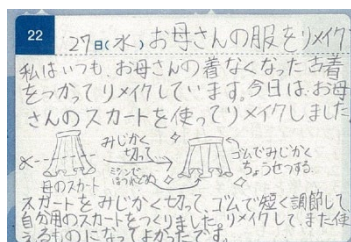 22
27日(水)お母さんの服をリメイク
私はいつも、お母さんの着なくなった古着
をつかってリメイクしています。今日は、お母
さんのスカートを使ってリメイクしました
みじかく
切って
ミシンで
ゴムでみじかく
ちょうせつする
母のスカート
スカートをみじかく切って、ゴムで短く調節して
自分用のスカートをつくりました。リメイクして、また使
えるものになってよかったです。